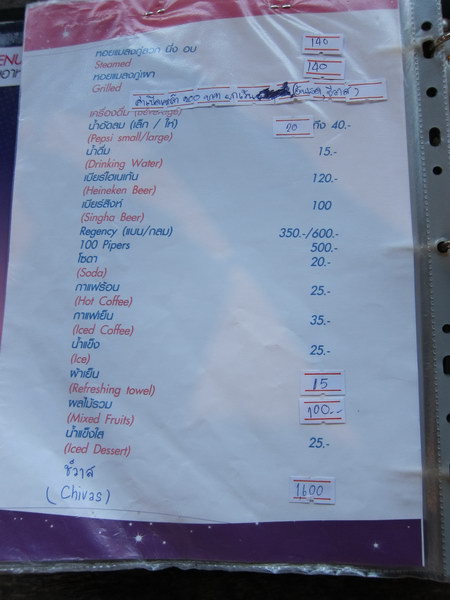 ENU
หอยแมลงภู่ลวก นึ่ง อบ 140
Steamed
หอยแมลงภู่เผา 140
Grilled
เครื่องดื่ม (Beverage)
น้ำอัดลม (เล็ก / ใหญ่) 20 ถึง 40.-
(Pepsi small/large)
น้ำดื่ม 15.-
(Drinking Water)
เบียร์ไฮเนเก้น 120.-
(Heineken Beer)
เบียร์สิงห์ 100
(Singha Beer)
Regency (แบน/กลม) 350.-/600.-
100 Pipers 500.-
โซดา 20.-
(Soda)
กาแฟร้อน 25.-
(Hot Coffee)
กาแฟเย็น 35.-
(Iced Coffee)
น้ำแข็ง 25.-
(Ice)
ผ้าเย็น 15
(Refreshing towel)
ผลไม้รวม 100.-
(Mixed Fruits)
น้ำแข็งใส 25.-
(Iced Dessert)
ชีวาส
(Chivas) 1600